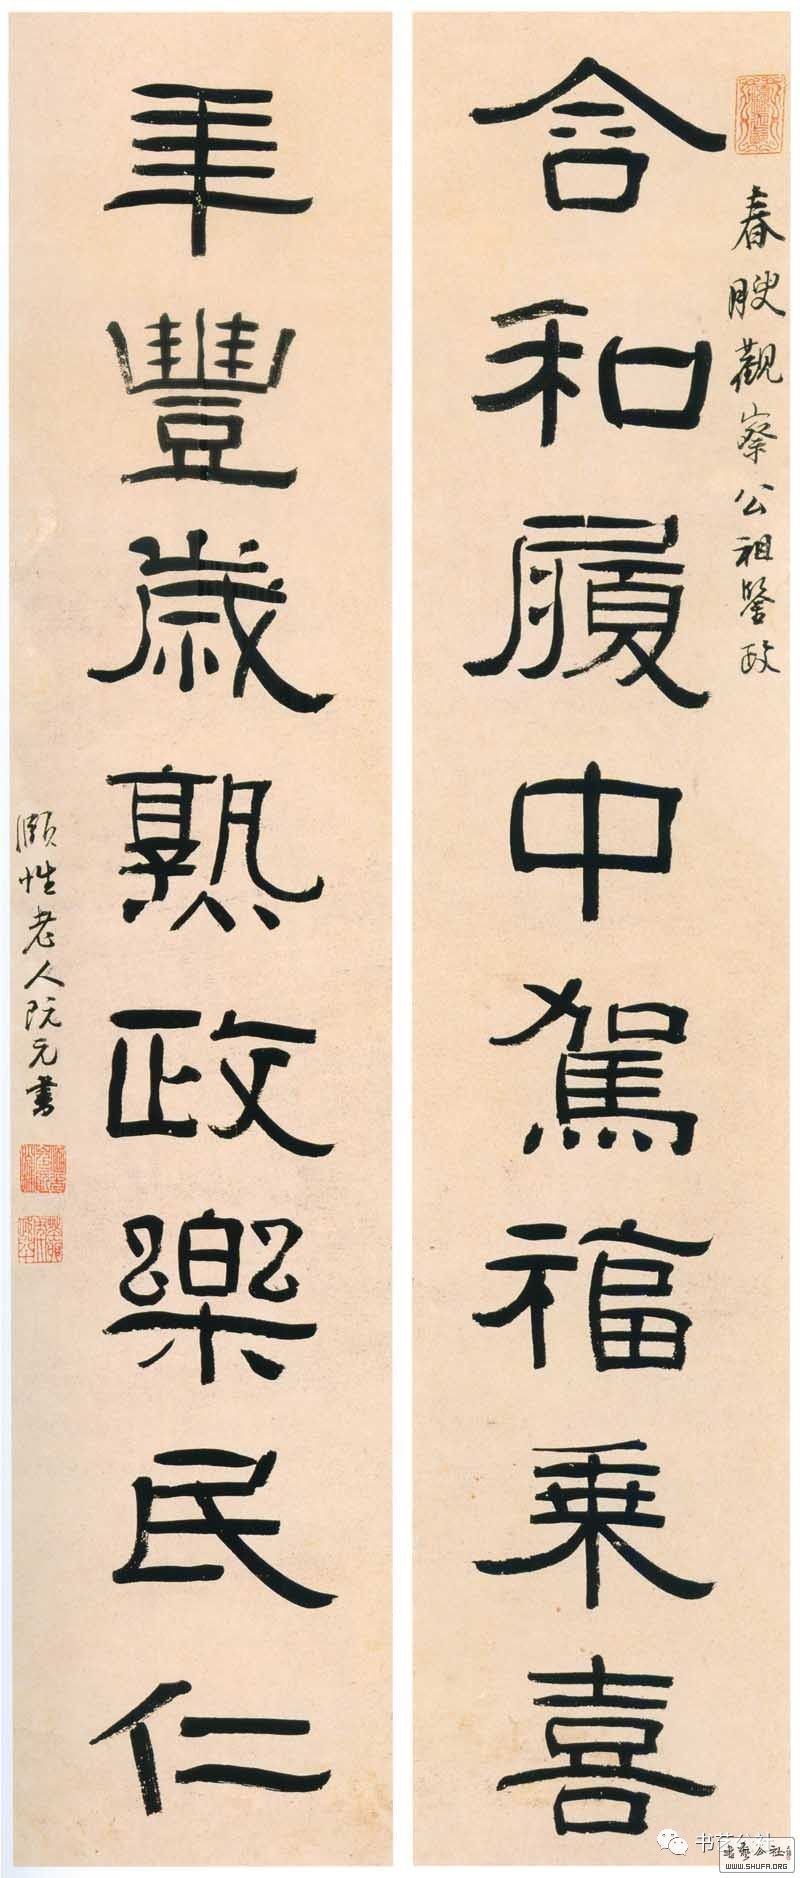 春腴觀察公祖鑒政
含和履中駕福乘喜
年豐歲熟政樂民仁
頤性老人阮元書
书艺公社
書艺公社
WWW.SHUFA.ORG